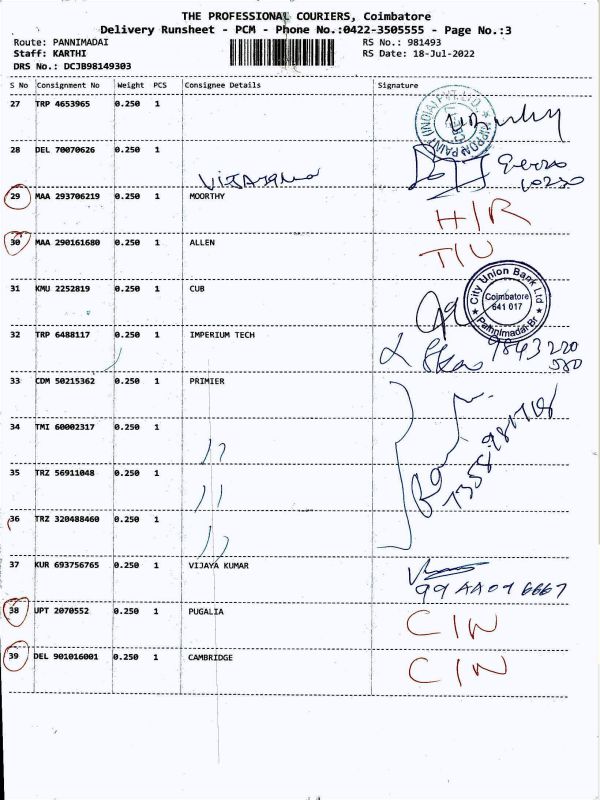 THE PROFESSIONAL COURIERS, Coimbatore
Delivery Runsheet - PCM - Phone No.:0422-3505555 - Page No.:3
Route: PANNIMADAI RS No.: 981493
Staff: KARTHI RS Date: 18-Jul-2022
DRS No.: DCJB98149303
S No Consignment No Weight PCS Consignee Details Signature
27 TRP 4653965 0.250 1
(INDIA) PVT. LTD. ★ NIPPON PAINT
28 DEL 70070626 0.250 1
29 MAA 293706219 0.250 1 MOORTHY H/R
30 MAA 290161680 0.250 1 ALLEN T/U
31 KMU 2252819 0.250 1 CUB
★ City Union Bank Ltd ★ Pannimadai Br
Coimbatore
641 017
32 TRP 6488117 0.250 1 IMPERIUM TECH 9843220
580
33 CDM 50215362 0.250 1 PRIMIER
34 TMI 60002317 0.250 1
35 TRZ 56911048 0.250 1
36 TRZ 320488460 0.250 1
37 KUR 693756765 0.250 1 VIJAYA KUMAR
38 UPT 2070552 0.250 1 PUGALIA C/N
39 DEL 901016001 0.250 1 CAMBRIDGE C/N